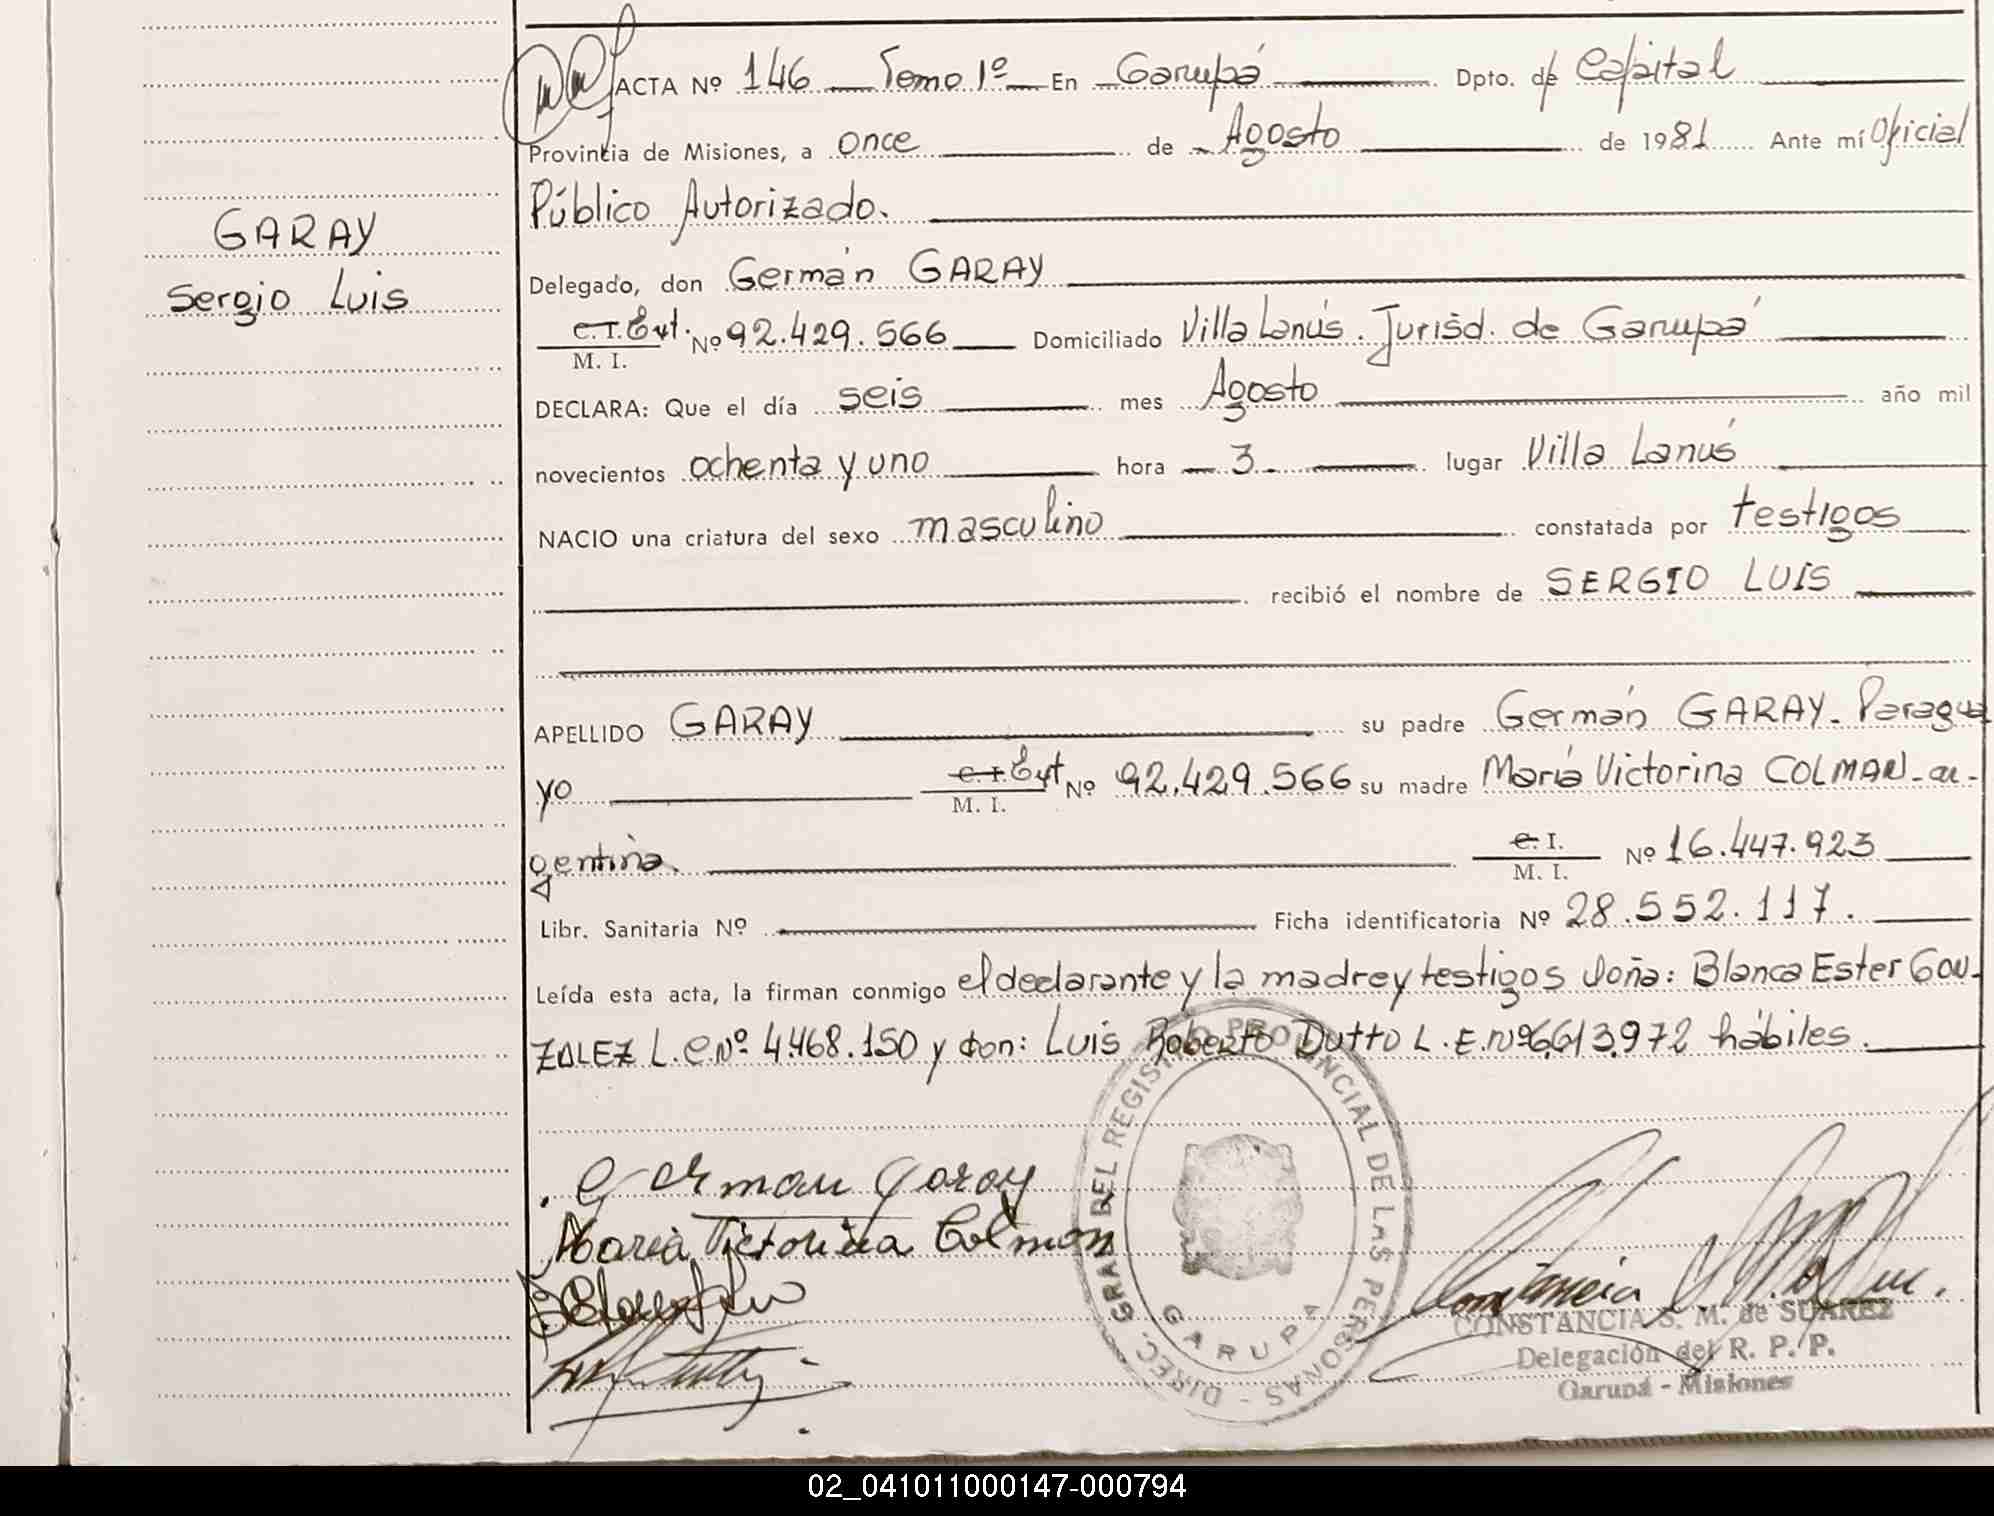 ACTA Nº 146 Tomo 1º En Garupá Dpto. de Capital
Provincia de Misiones, a once de Agosto de 1981 Ante mí Oficial
Público Autorizado.
GARAY
Sergio Luis
Delegado, don Germán GARAY
C.I. Ext. Nº 92.429.566 Domiciliado Villa Lanús. Jurisd. de Garupá
M. I.
DECLARA: Que el día seis mes Agosto año mil
novecientos ochenta y uno hora 3 lugar Villa Lanús
NACIO una criatura del sexo masculino constatada por testigos
recibió el nombre de SERGIO LUIS
APELLIDO GARAY su padre Germán GARAY - Paragua
yo C.I. Ext Nº 92.429.566 su madre María Victorina COLMAN - ar-
M. I.
gentina. C. I. Nº 16.447.923
M. I.
Libr. Sanitaria Nº Ficha identificatoria Nº 28.552.117.
Leída esta acta, la firman conmigo el declarante y la madre y testigos doña: Blanca Ester GON-
ZALEZ L.C. Nº 4.468.150 y don: Luis Roberto Dutto L.E. Nº 6.613.972 hábiles.
German Garay
Maria Victorina Colman
DIREC. GRAL. DEL REGISTRO PROVINCIAL DE LAS PERSONAS -
GARUPA
CONSTANCIA S. M. de SUAREZ
Delegación del R. P. P.
Garupá - Misiones
02_041011000147-000794